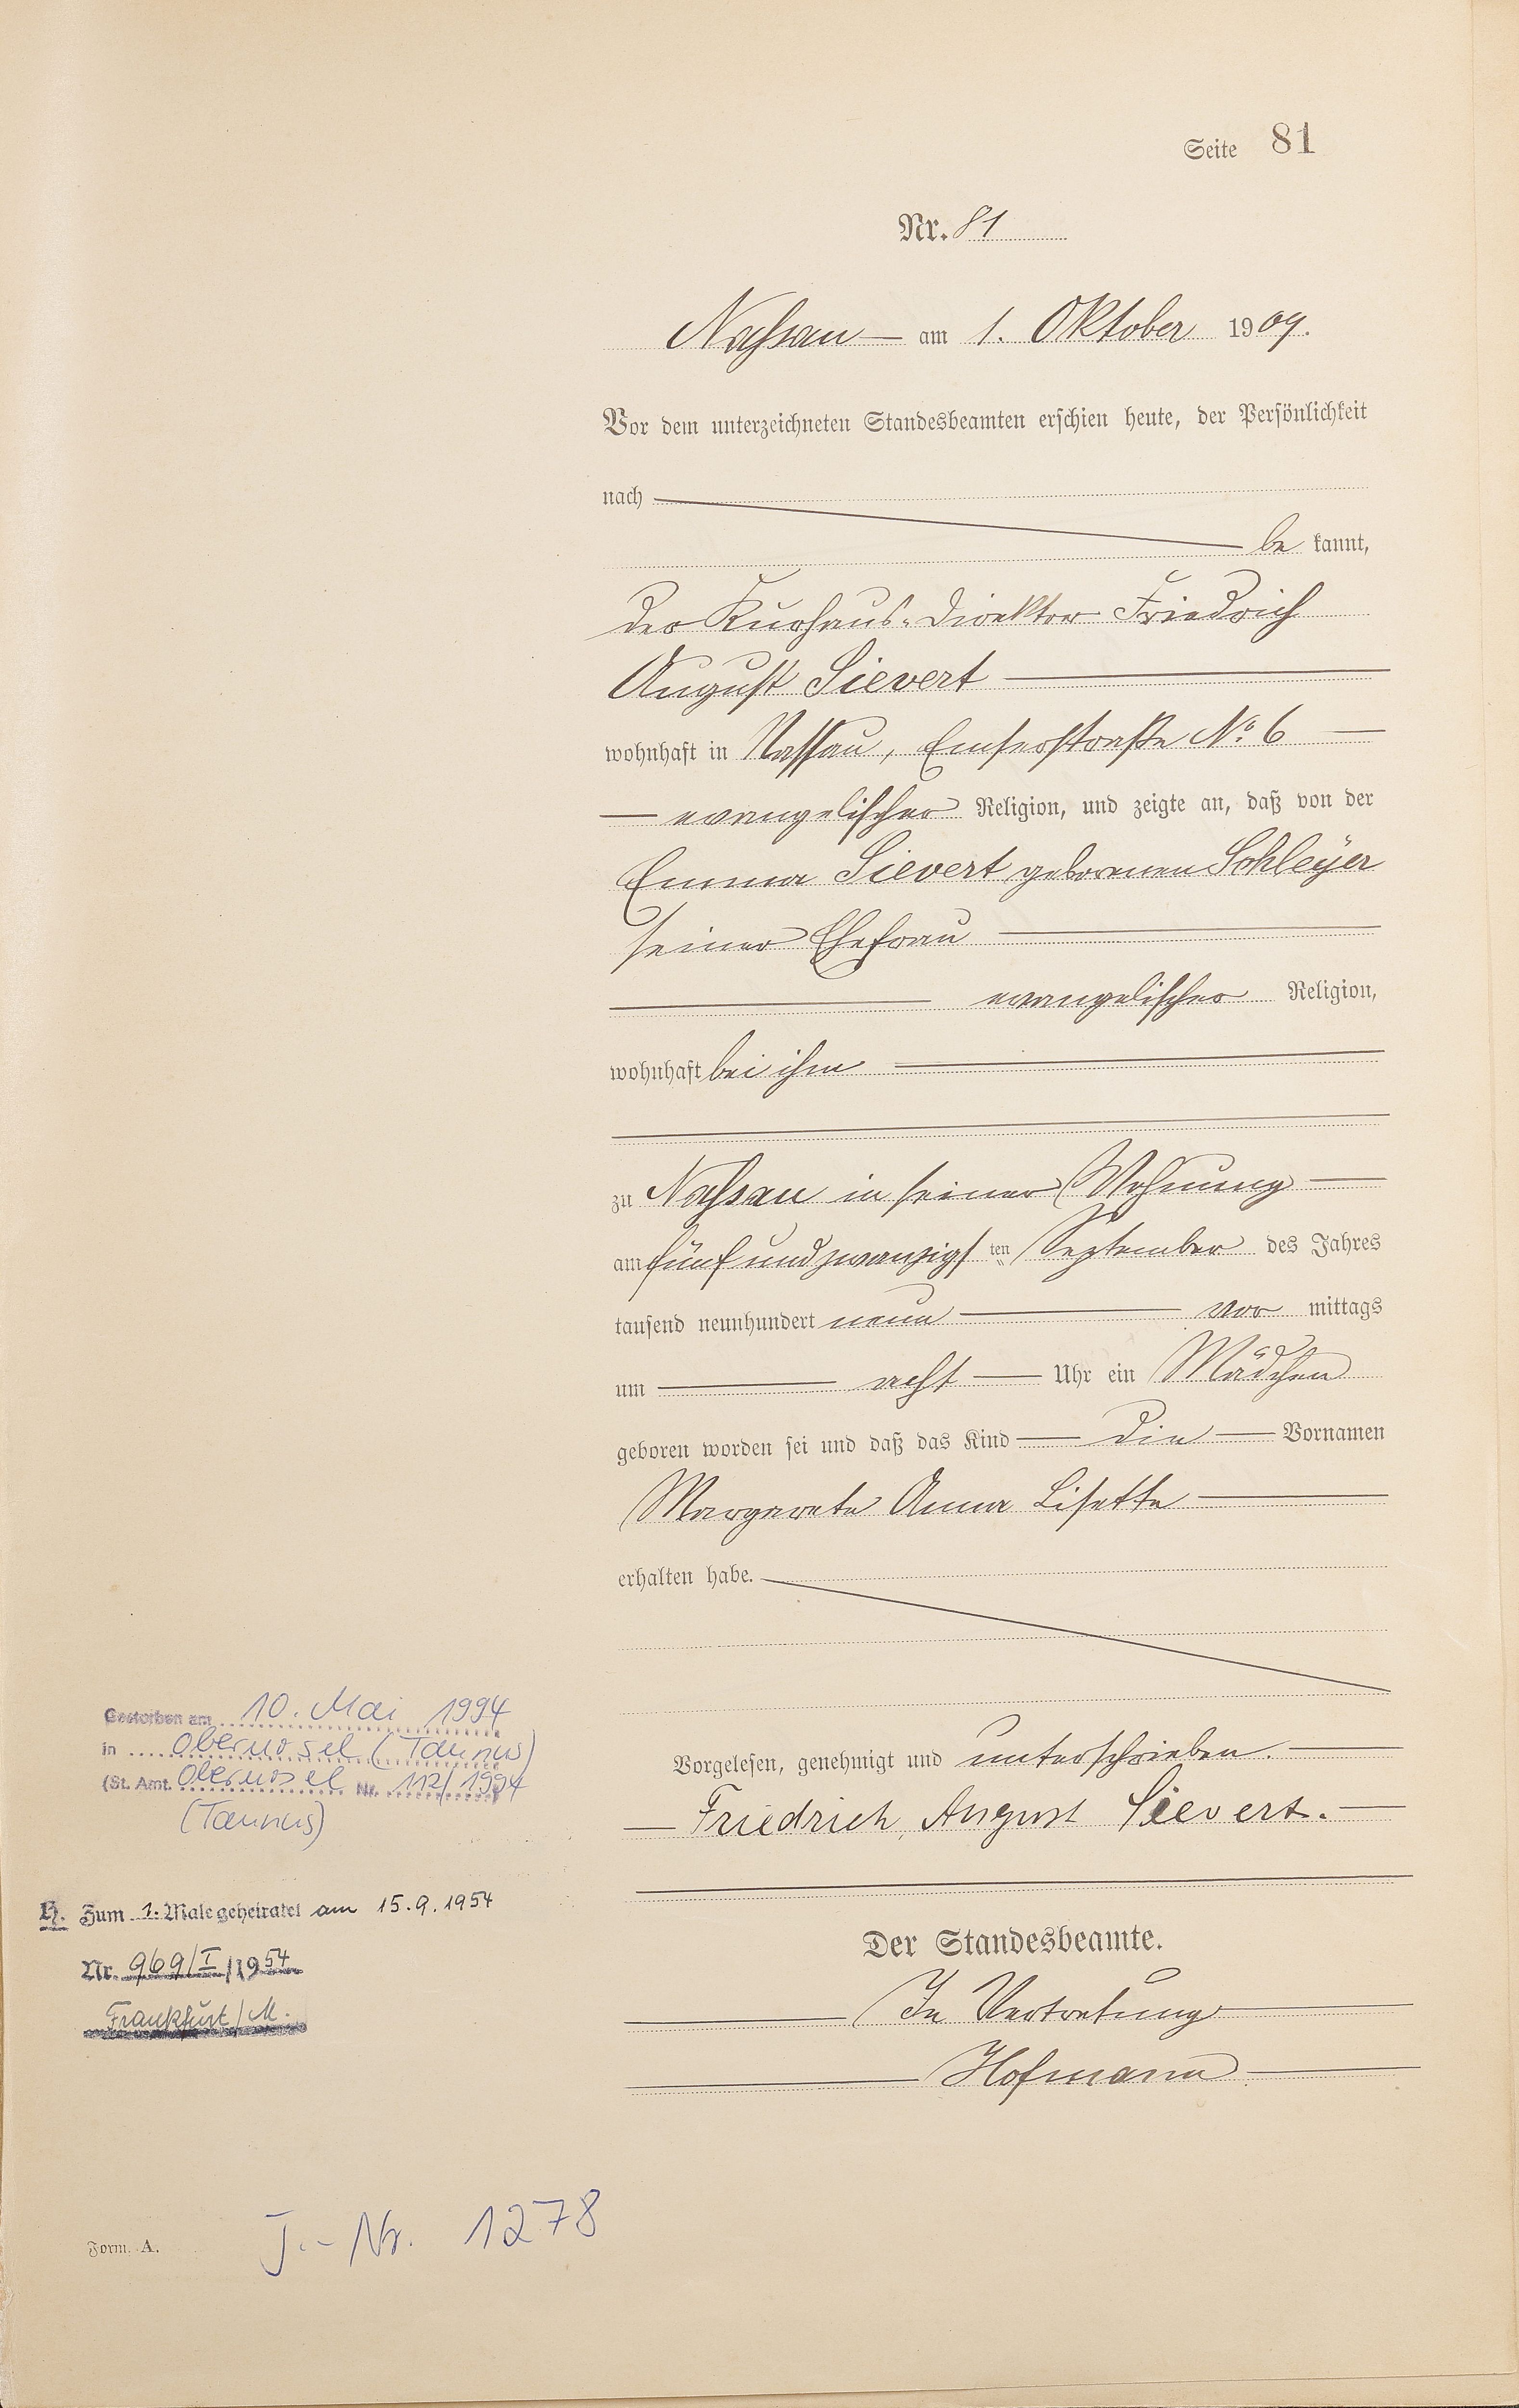 Seite 81
Nr. 81
Nassau am 1. Oktober 1909.
Vor dem unterzeichneten Standesbeamten erschien heute, der Persönlichkeit
nach
be kannt,
der Kurhaus-Direktor Friedrich
August Sievert
wohnhaft in Nassau, Emserstraße No. 6
evangelischer Religion, und zeigte an, daß von der
Emma Sievert geborenen Schleyer
seiner Ehefrau
evangelischer Religion,
wohnhaft bei ihm
zu Nassau in seiner Wohnung
am fünfundzwanzigsten September des Jahres
tausend neunhundert neun vor mittags
um acht Uhr ein Mädchen
geboren worden sei und daß das Kind die Vornamen
Margarete Anna Lisette
erhalten habe.
Vorgelesen, genehmigt und unterschrieben.
Friedrich August Sievert.
Der Standesbeamte.
In Vertretung
Hofmann
Gestorben am 10. Mai 1994
in Oberursel (Taunus)
(St. Amt. Oberursel Nr. 112/1994
(Taunus)
H. Zum 1. Male geheiratet am 15.9.1954
Nr. 969/I/1954
Frankfurt/M.
Form. A.
J.-Nr. 1278